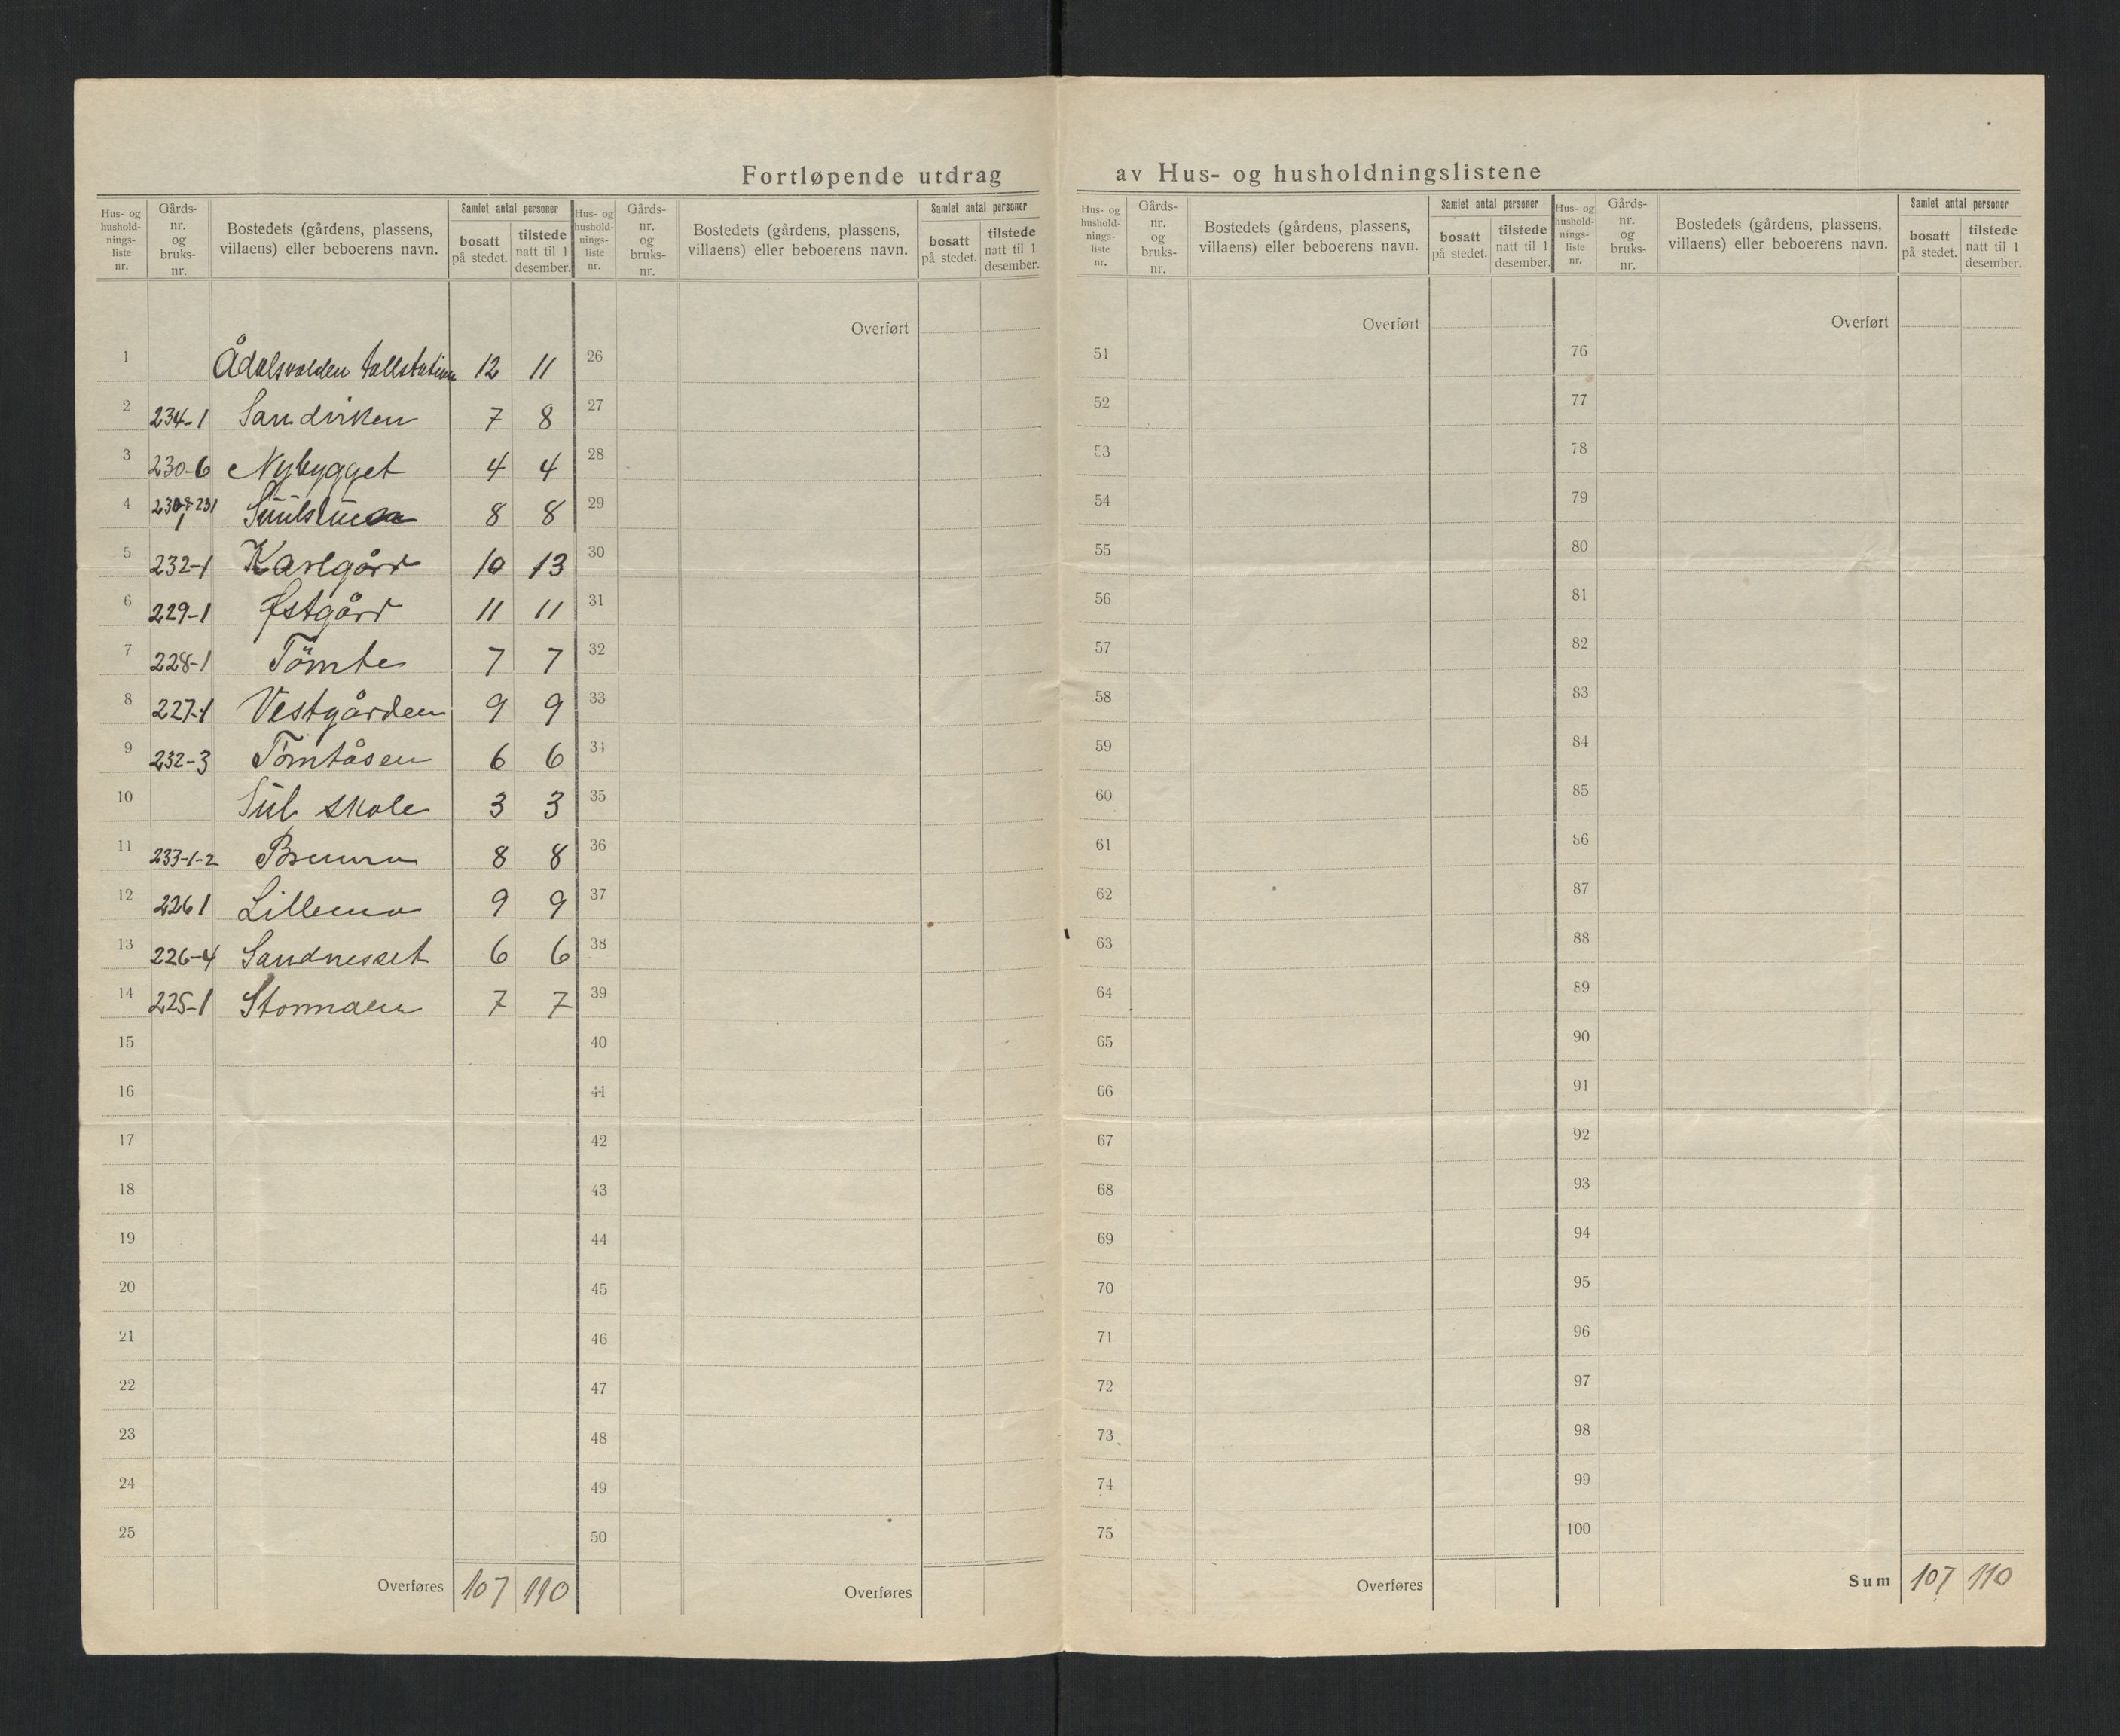 Fortløpende utdrag av Hus- og husholdningslistene
Hus- og hushold-nings-liste nr. Gårds-nr. og bruks-nr. Bostedets (gårdens, plassens, villaens) eller beboerens navn. Samlet antal personer bosatt på stedet. tilstede natt til 1 desember.
1 Ådalsvolden tollstation 12 11
2 234-1 Sandviken 7 8
3 230-6 Nybygget 4 4
4 8 8
5 232-1 Karlgård 10 13
6 229-1 Østgård 11 11
7 228-1 Tömte 7 7
8 227-1 Vestgården 9 9
9 232-3 Tömtåsen 6 6
10 Sul skole 3 3
11 233-1-2 8 8
12 226 1 Lillemo 9 9
13 226-4 Sandnesset 6 6
14 225-1 Stormoen 7 7
15
16
17
18
19
20
21
22
23
24
25
Overføres 107 110
Hus- og hushold-nings-liste nr. Gårds-nr. og bruks-nr. Bostedets (gårdens, plassens, villaens) eller beboerens navn. Samlet antal personer bosatt på stedet. tilstede natt til 1 desember.
Overført
26
27
28
29
30
31
32
33
34
35
36
37
38
39
40
41
42
43
44
45
46
47
48
49
50
Overføres
Hus- og hushold-nings-liste nr. Gårds-nr. og bruks-nr. Bostedets (gårdens, plassens, villaens) eller beboerens navn. Samlet antal personer bosatt på stedet. tilstede natt til 1 desember.
Overført
51
52
53
54
55
56
57
58
59
60
61
62
63
64
65
66
67
68
69
70
71
72
73
74
75
Overføres
Hus- og hushold-nings-liste nr. Gårds-nr. og bruks-nr. Bostedets (gårdens, plassens, villaens) eller beboerens navn. Samlet antal personer bosatt på stedet. tilstede natt til 1 desember.
Overført
76
77
78
79
80
81
82
83
84
85
86
87
88
89
90
91
92
93
94
95
96
97
98
99
100
Sum 107 110